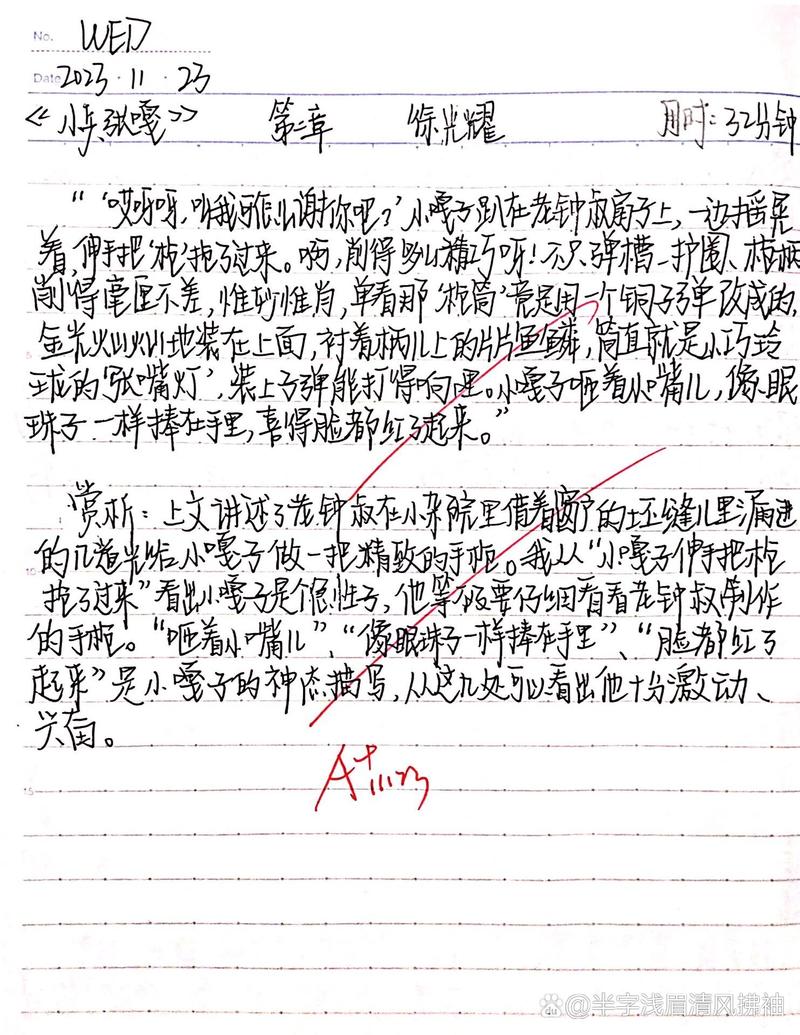 No. WED
Date 2023·11·23
《小兵张嘎》 第二章 徐光耀 用时:32分钟
“‘哎呀呀,叫我可怎么谢你吧?’小嘎子趴在老钟叔膀子上,一边摇晃
着,伸手把‘枪’拖了过来。啊,削得多么精巧呀!不只弹槽、护圈、枪柄
削得毫厘不差,惟妙惟肖,单看那‘枪筒’竟是用一个铜子弹改成的,
金光灿灿地装在上面,衬着柄儿上的片片鱼鳞,简直就是小巧玲
珑的‘张嘴灯’,装上子弹能打得响哩。小嘎子咂着小嘴儿,像眼
珠子一样捧在手里,喜得脸都红了起来。”
赏析:上文讲述了老钟叔在小杂院里借着窗户的坯缝儿里漏进
的几道光给小嘎子做一把精致的手枪。我从“小嘎子伸手把枪
拖了过来”看出小嘎子是个急性子,他等不及要仔细看看老钟叔制作
的手枪。“咂着小嘴儿”、“像眼珠子一样捧在手里”、“脸都红了
起来”是小嘎子的神态描写,从这几处可以看出他十分激动、
兴奋。
A+ 11.23
@半字浅眉清风拂袖